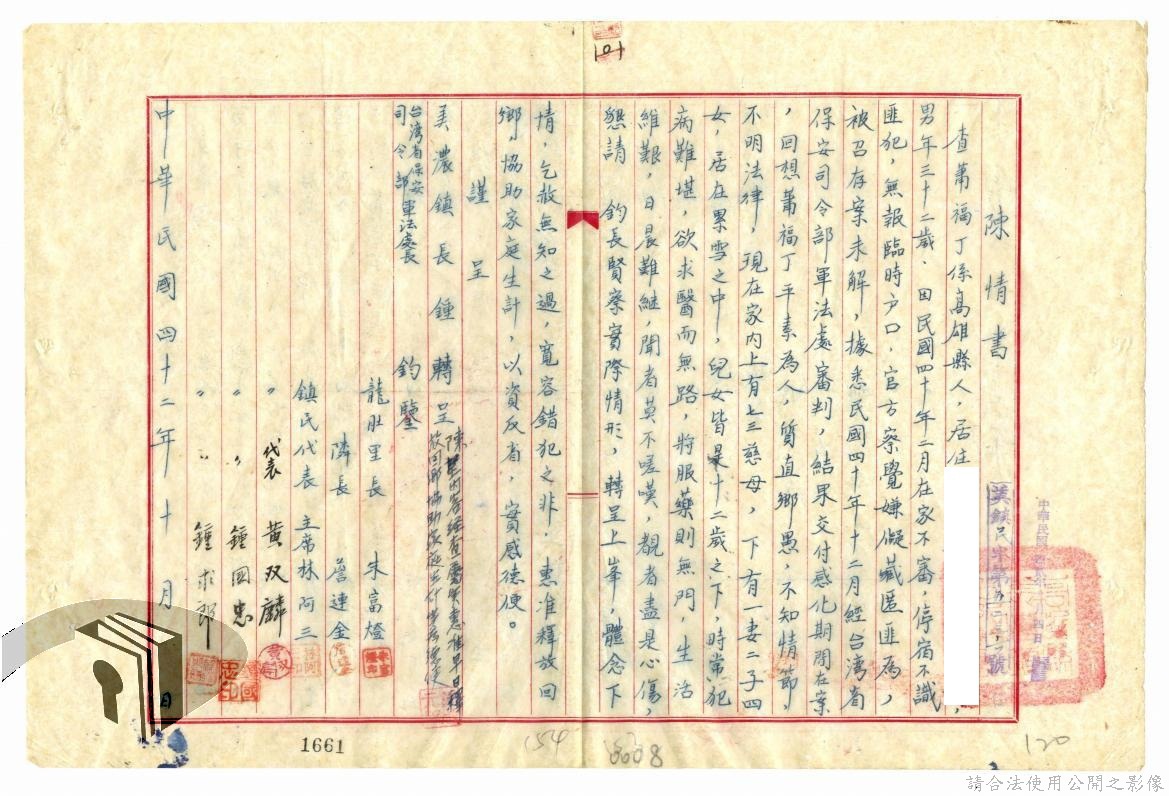 陳情書
查蕭福丁係高雄縣人，居住
男年三十二歲．因民國四十年二月在家不審，停宿不識
匪犯，無報臨時户口．官方察覺嫌儗藏匿匪為，
被召存案未解，據悉民國四十年十二月經台湾省
保安司令部軍法處審判，結果交付感化期間在案
，回想蕭福丁平素為人，質直鄉愚，不知情節，
不明法律，現在家內上有七三慈母，下有一妻二子四
女，居在累雪之中，兒女皆是十二歲之下，時常犯
病難堪，欲求醫而無路，將服藥則無門，生活
維艱，日晨難継，聞者莫不嗟嘆，觀者盡是心傷，
懇請　鈞長賢察實際情形，轉呈上峯，體念下
情，乞赦無知之過，寬容錯犯之非．惠准釋放回
鄉，協助家庭生計，以資反省，實感德便。
謹呈
美濃鎮長鍾轉呈
陳
惠准早日釋
放回鄉協助家庭生計
台湾省保安
司令部
軍法處長
鈞鑒
龍肚里長　朱富燈
隣長　詹連金
鎮民代表　主席林阿三
〃　代表　黃双麟
〃　〃　鍾國忠
〃　〃　鍾求郎
中華民國四十二年十月　日
101
1661
154
0008
120
請合法使用公開之影像